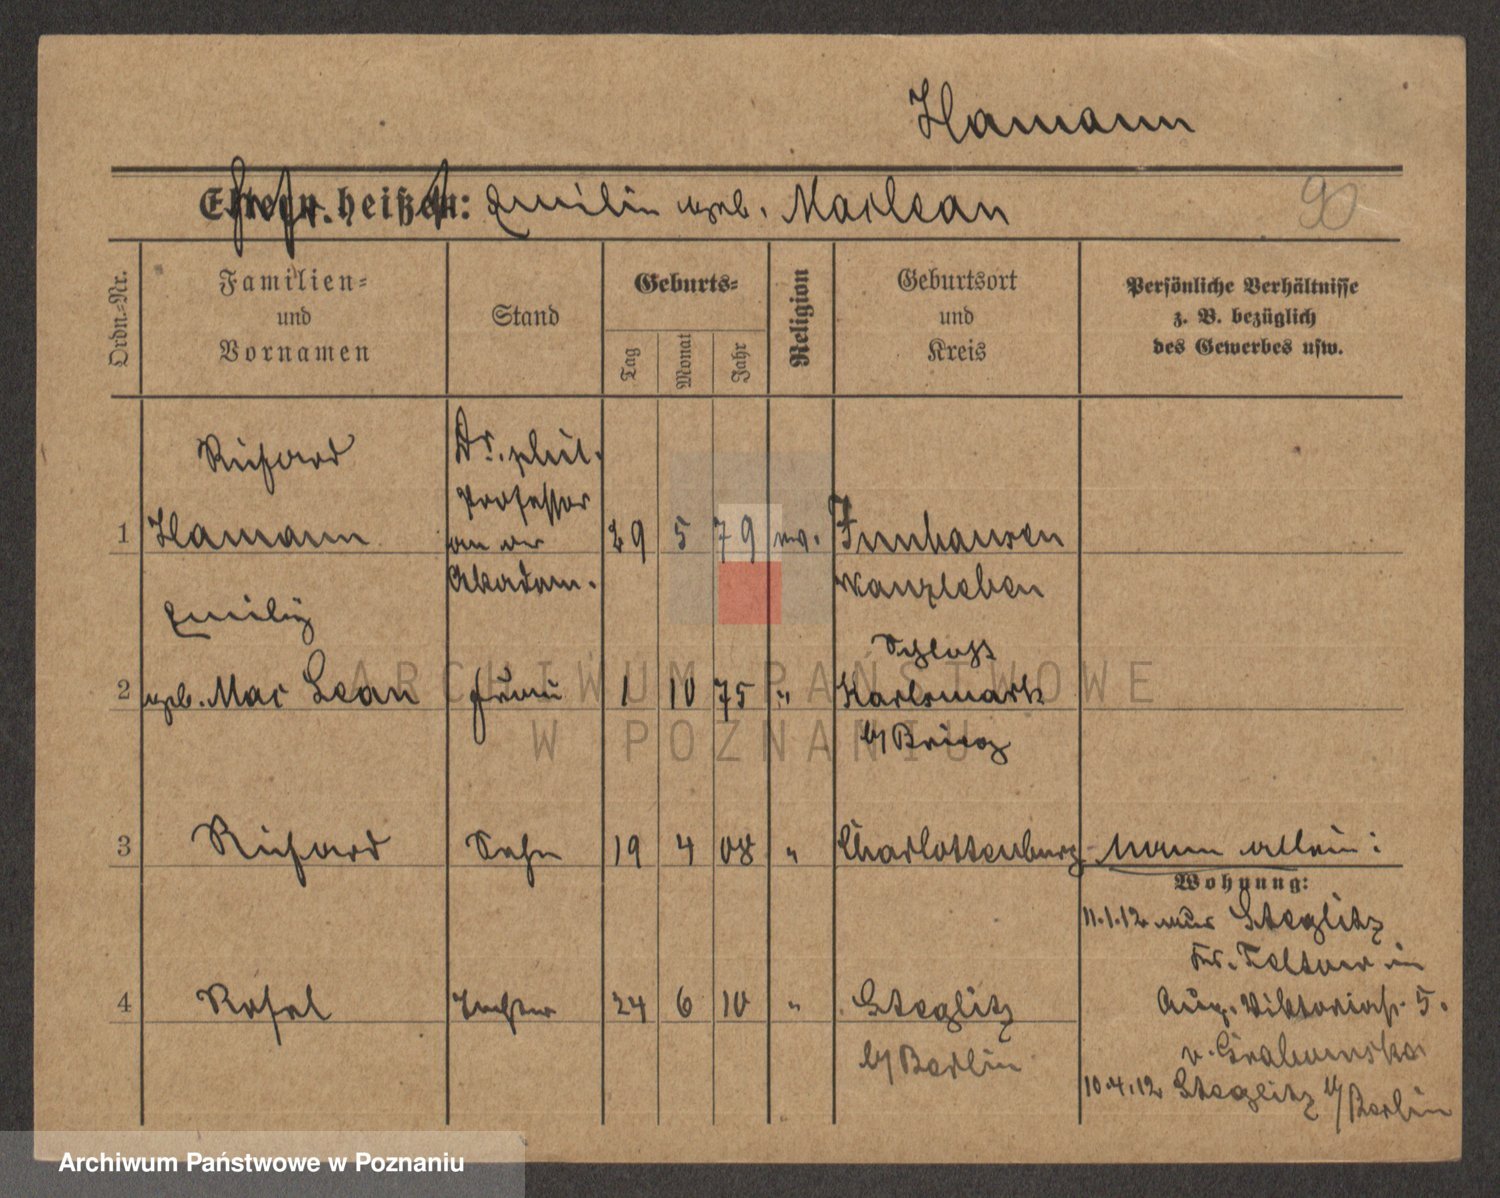 Hamann
Eltern heißen: Emilie geb. MacLean
90
Ordn.-Nr.
Familien-
und
Vornamen
Stand
Geburts-
Tag
Monat
Jahr
Religion
Geburtsort
und
Kreis
Persönliche Verhältnisse
z. B. bezüglich
des Gewerbes usw.
Richard
1 Hamann
Dr. phil.
Professor
an der
Akadem.
29 5 79 ev.
Wanzleben
Emilie
2 geb. Mac Lean Frau 1 10 75 "
Schloß
Karlsmark
b/ Brieg
3 Richard Sohn 19 4 08 " Charlottenburg
Mann allein:
Wohnung:
11.1.12 aus Steglitz
Kr. Teltow in
Aug. Viktoriast. 5.
v. Grabowska
10.4.12 Steglitz b/Berlin
4 Tochter 24 6 10 " Steglitz
b/ Berlin
ARCHIWUM PAŃSTWOWE
W POZNANIU
Archiwum Państwowe w Poznaniu